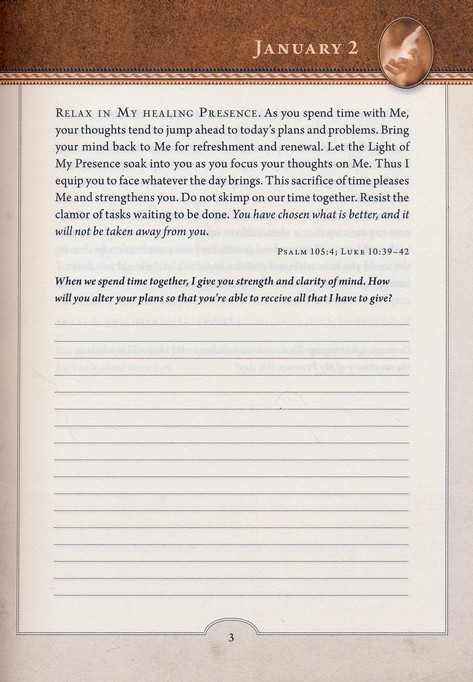 January 2
Relax in My healing Presence. As you spend time with Me,
your thoughts tend to jump ahead to today's plans and problems. Bring
your mind back to Me for refreshment and renewal. Let the Light of
My Presence soak into you as you focus your thoughts on Me. Thus I
equip you to face whatever the day brings. This sacrifice of time pleases
Me and strengthens you. Do not skimp on our time together. Resist the
clamor of tasks waiting to be done. You have chosen what is better, and it
will not be taken away from you.
Psalm 105:4; Luke 10:39–42
When we spend time together, I give you strength and clarity of mind. How
will you alter your plans so that you're able to receive all that I have to give?
3